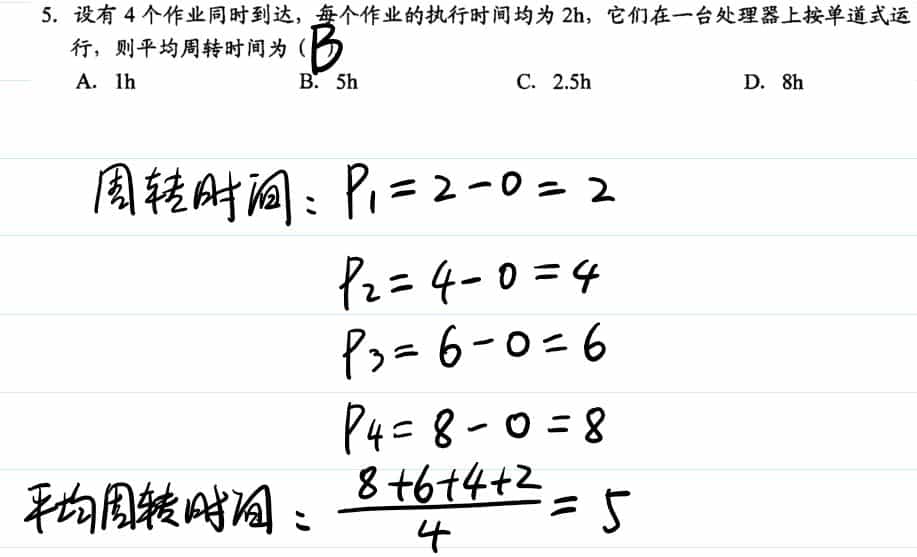 5. 设有 4 个作业同时到达，每个作业的执行时间均为 2h，它们在一台处理器上按单道式运
行，则平均周转时间为（B
A. 1h B. 5h C. 2.5h D. 8h
周转时间：P₁=2-0=2
P₂=4-0=4
P₃=6-0=6
P₄=8-0=8
平均周转时间：(8+6+4+2)/4=5